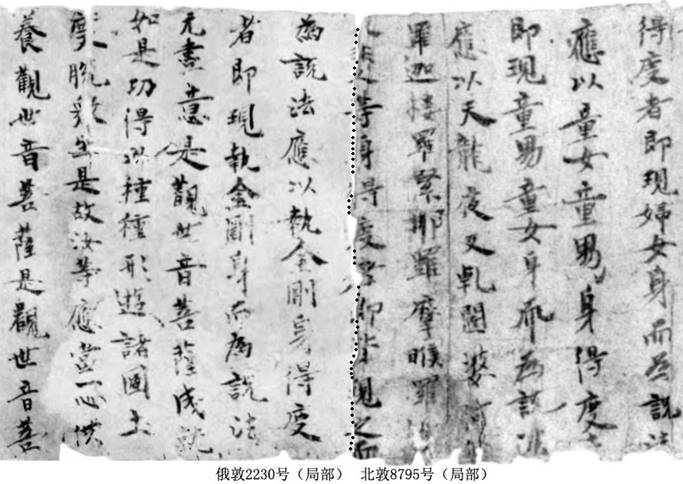 得度者即現婦女身而為說法
應以童女童男身得度
即現童男童女身而為說法
應以天龍夜叉乹闥婆阿
羅迦樓羅緊那羅摩睺羅
等身得度者即皆現之而
為說法應以執金剛身得度
者即現執金剛身而為說法
无盡意是觀世音菩薩成就
如是功得以種種形遊諸國土
度脫眾生是故汝等應當一心供
養觀世音菩薩是觀世音菩
俄敦2230号（局部） 北敦8795号（局部）